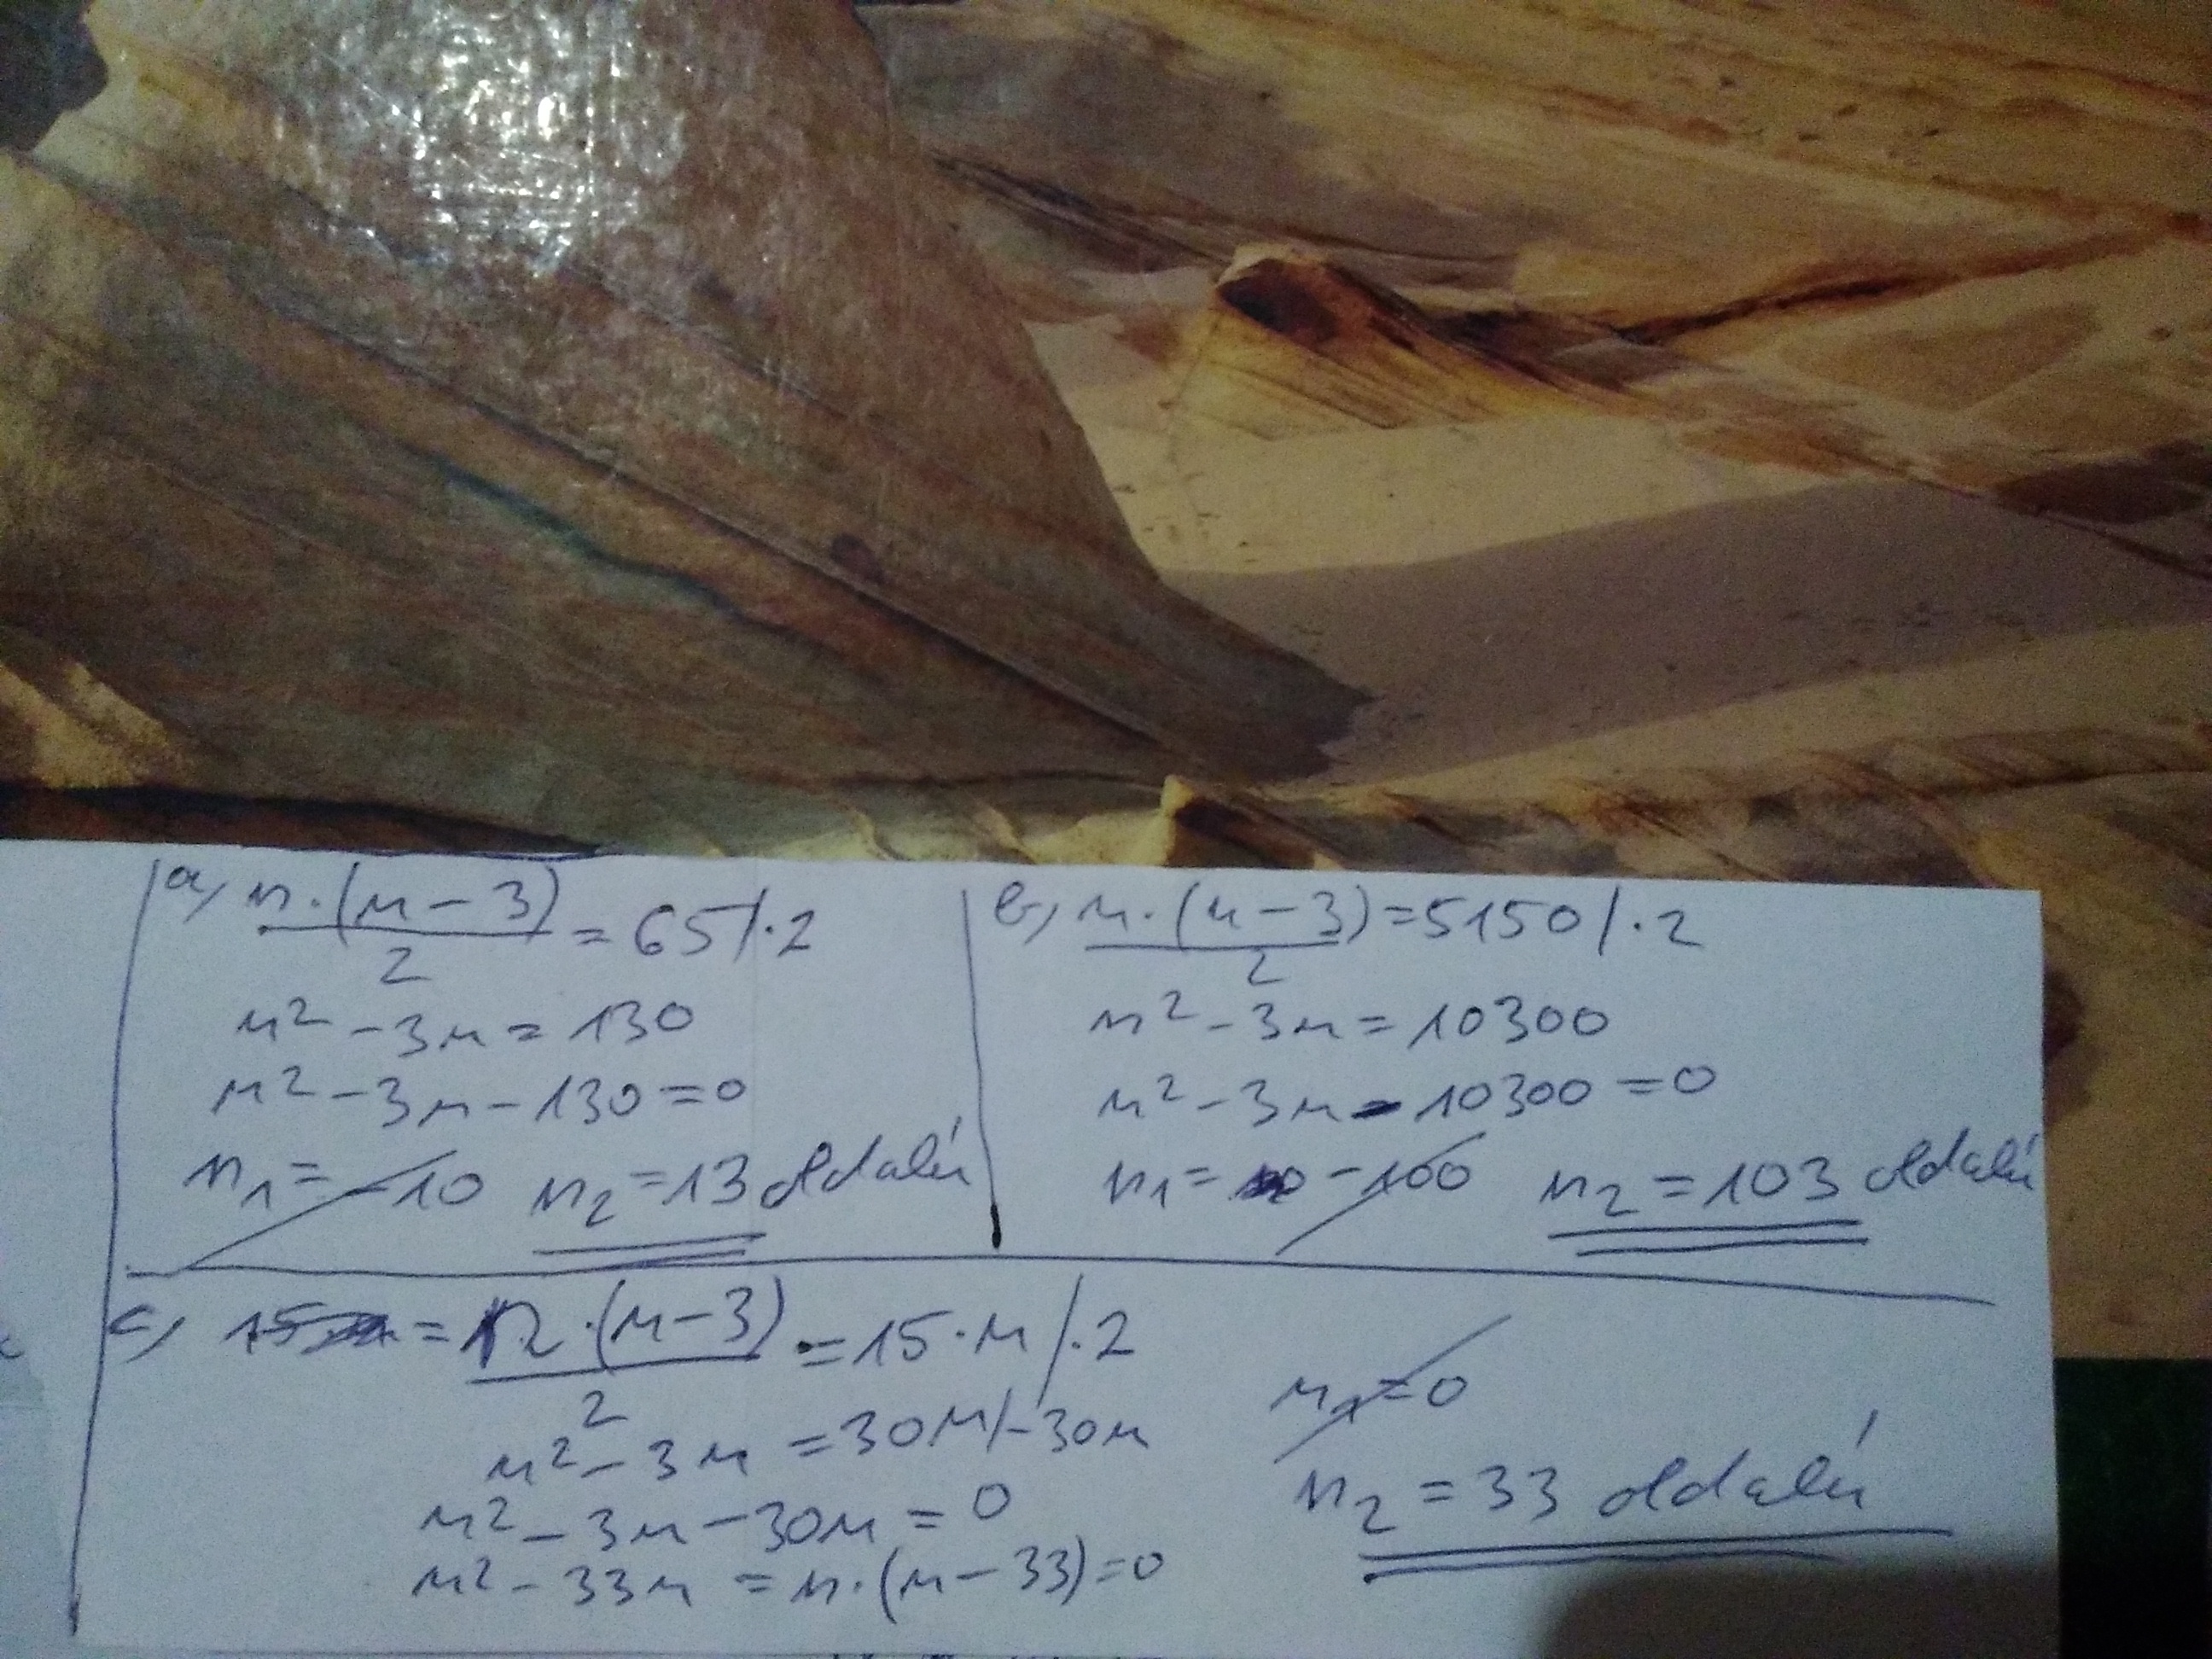 a, n·(n-3)/2 = 65 /·2
n² - 3n = 130
n² - 3n - 130 = 0
n₁ = -10 n₂ = 13 oldalú
b, n·(n-3)/2 = 5150 /·2
n² - 3n = 10300
n² - 3n - 10300 = 0
n₁ = -100 n₂ = 103 oldalú
c, = n·(n-3)/2 = 15·n /·2
n² - 3n = 30n /-30n
n² - 3n - 30n = 0
n² - 33n = n·(n-33) = 0
n₁ = 0
n₂ = 33 oldalú